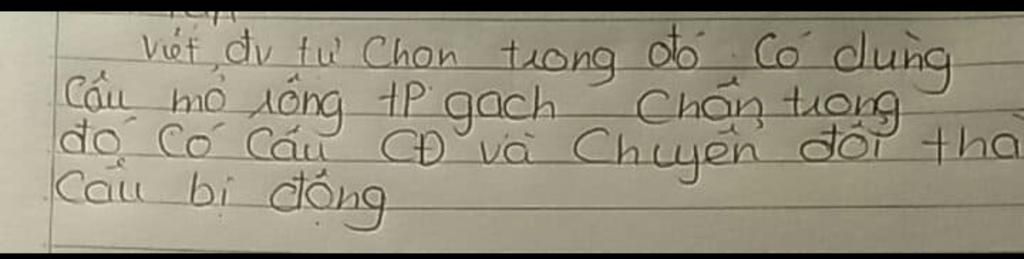 Viết đv tự Chọn trong đó Có dùng
Câu mở rộng tP gạch Chân trong
đó Có Câu CĐ và Chuyển đổi thà
Câu bị động